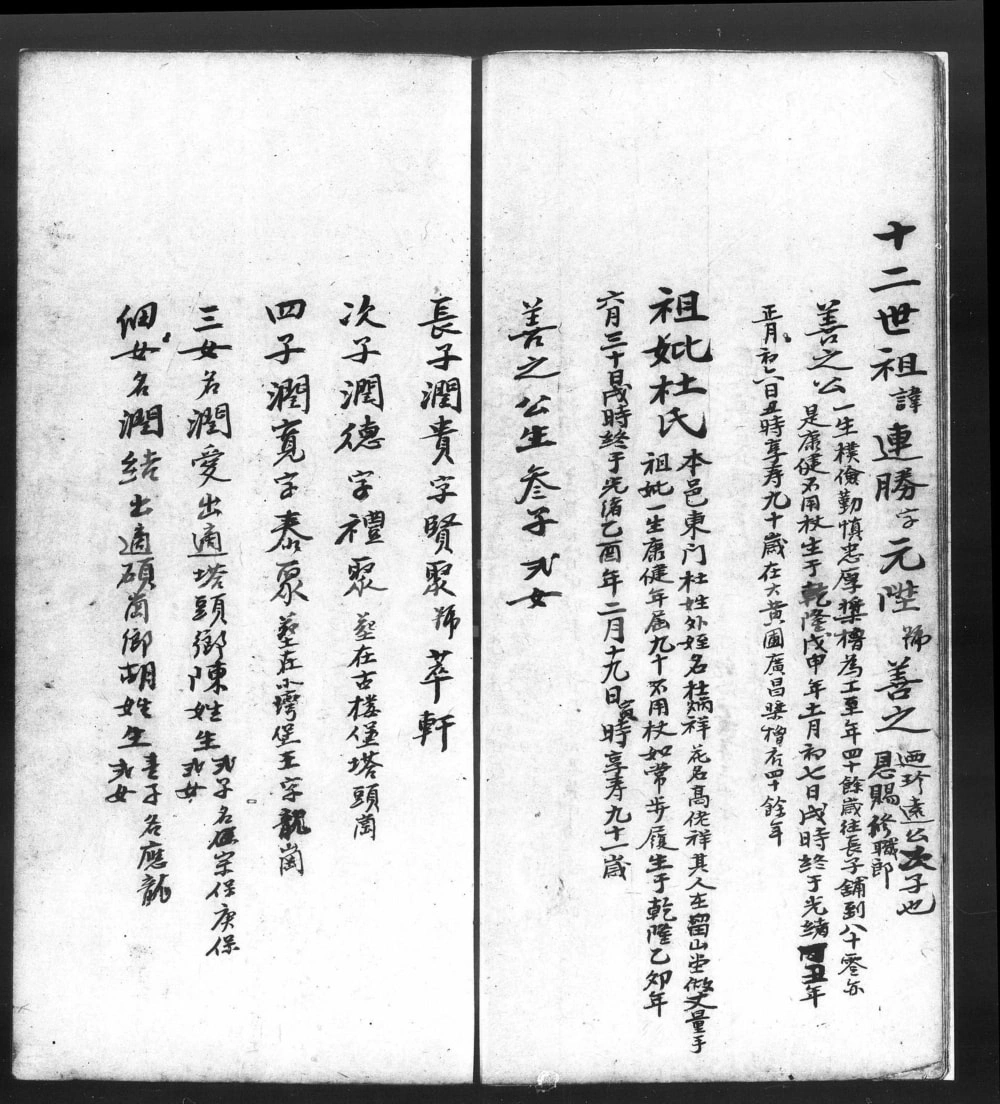 十二世祖諱連勝字元陞號善之迺珍遠公次子也
恩賜修職郎
善之公一生樸儉勤慎忠厚槳櫓為工至年四十餘歲往長子鋪到八十零亦
是康健不用杖生于乾隆戊申年十一月初七日戌時終于光緒丁丑年
正月初六日丑時享寿九十歲在大黄圃廣昌槳櫓店四十餘年
祖妣杜氏本邑東门杜姓外姪名杜炳祥花名高佬祥其人在留山堂做丈量手
祖妣一生康健年届九十不用杖如常步履生于乾隆乙卯年
六月三十日戌時終于光緒乙酉年二月十九日寅時享寿九十一歲
善之公生叁子弍女
長子潤貴字賢聚號萃軒
次子潤德字禮聚墓在古楼堡塔頭崗
四子潤寬字泰聚墓在小灣堡王字龍崗
三女名潤愛出適塔頭鄉陳姓生弍子名宗保庚保
弍女
細女名潤結出適碩崗鄉胡姓生壹子名應龍
弍女